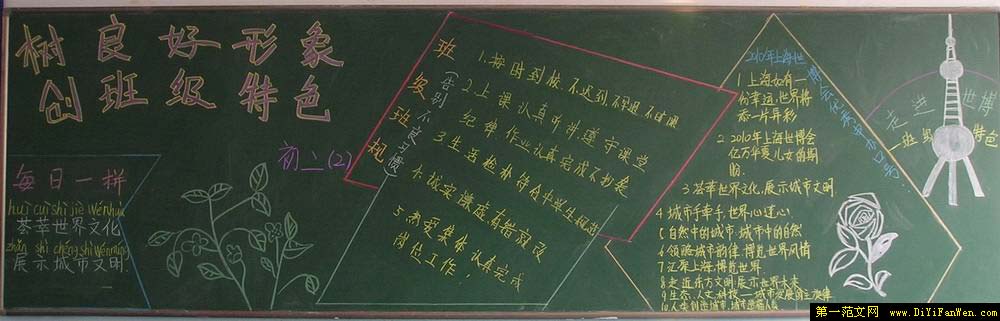 树良好形象
创班级特色
初二(2)
每日一拼
huì cuì shì jiè wén huà
荟萃世界文化
zhǎn shì chéng shì wén míng
展示城市文明
班级班规
告别不良习惯
1.按时到校 不迟到 不早退 不旷课
2.上课认真听讲遵守课堂
纪律作业认真完成不抄袭
3.生活检朴符合中学生规范
4.诚实谦虚有错就改
5.热爱集体,认真完成
岗位工作.
2010年上海世博会征集中标口号
1上海如有一
份幸运,世界将
添一片异彩
2.2010年上海世博会
亿万华夏儿女的期
盼.
3.荟萃世界文化,展示城市文明
4.城市手牵手,世界心连心
自然中的城市,城市中的自然
6.领略城市韵律,博览世界风情
7.汇聚上海,博览世界
8.走近东方文明展示世界未来
9.生态、人文、科技——城市发展的主旋律
10.人类创造城市,城市造福人类
走进世博
班级特色
第一范文网 www.DiYiFanWen.com